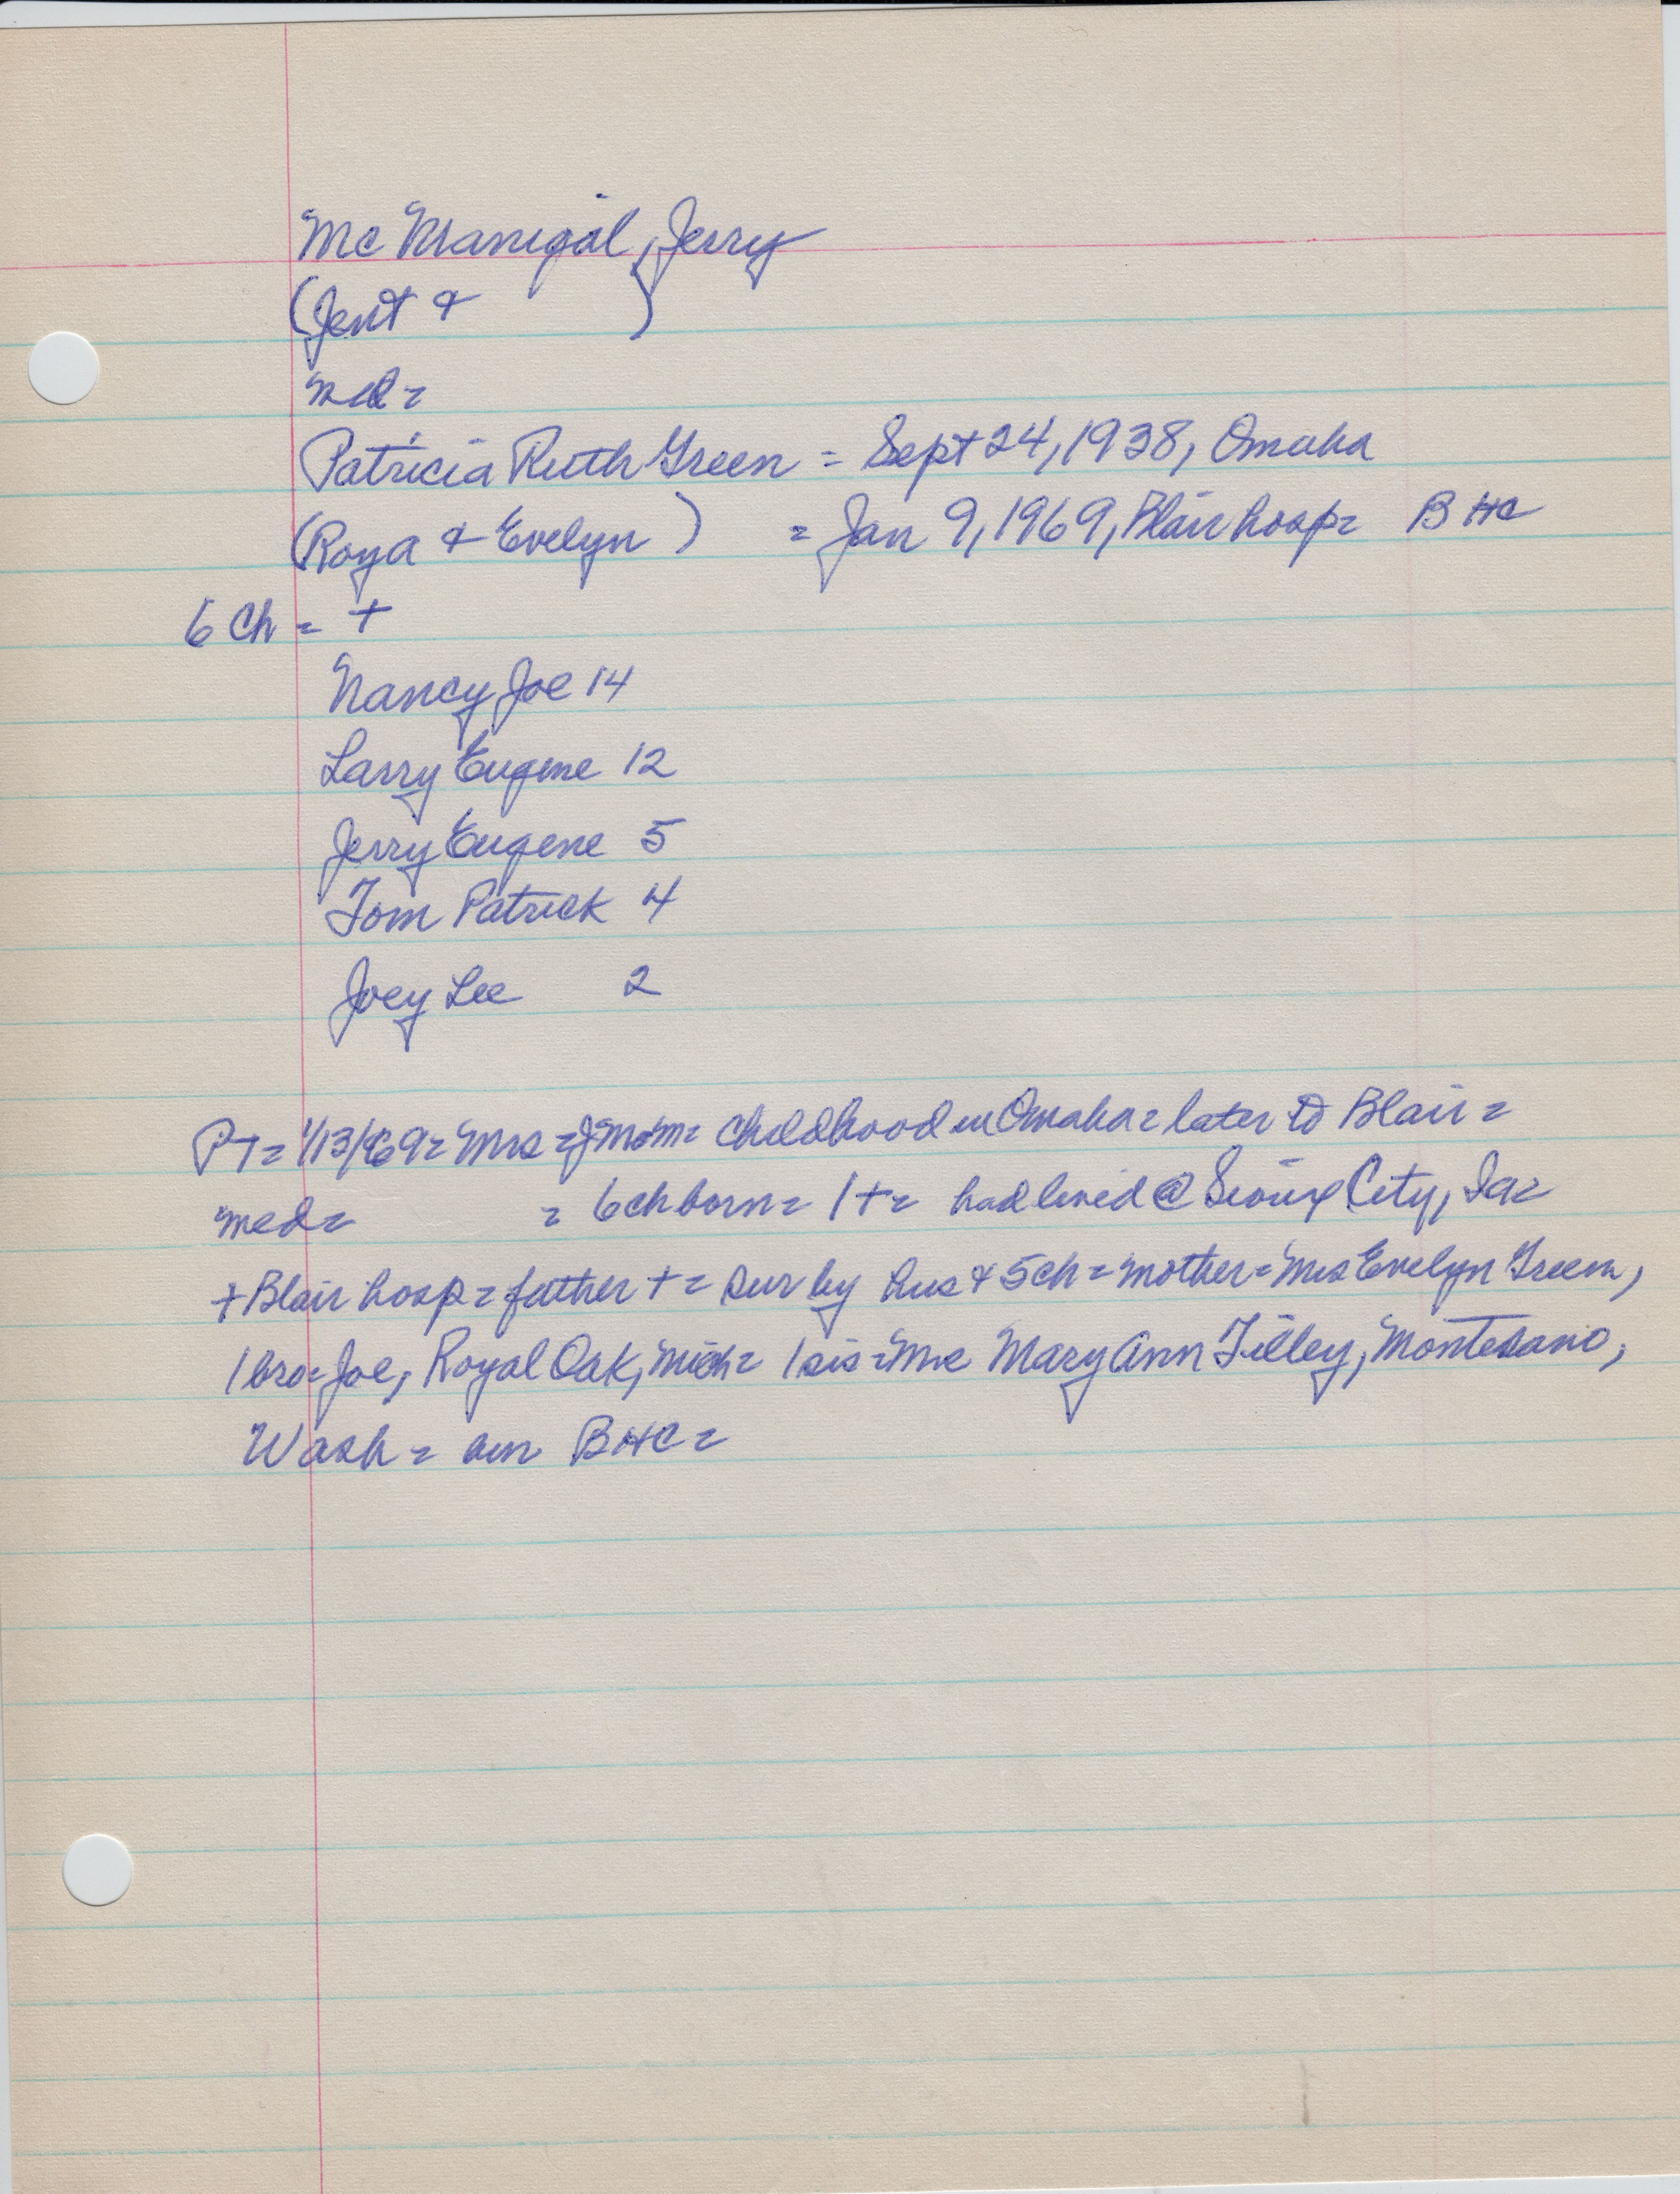 McManigal, Jerry
(Jent & )
md =
Patricia Ruth Green = Sept 24, 1938, Omaha
(Roy a & Evelyn ) = Jan 9, 1969, Blair hosp = B HC
6 Ch = +
Nancy Joe 14
Larry Eugene 12
Jerry Eugene 5
Tom Patrick 4
Joey Lee 2
PT = 1/13/69 = Mrs = J McM = childhood in Omaha = later to Blair =
med = = 6 ch born = 1 + = had lived @ Sioux City, Ia =
+ Blair hosp = father + = sur by hus & 5 ch = mother = Mrs Evelyn Green,
1 bro = Joe, Royal Oak, Mich = 1 sis = Mrs Mary Ann Tilley, Montesano,
Wash = bur BHC =